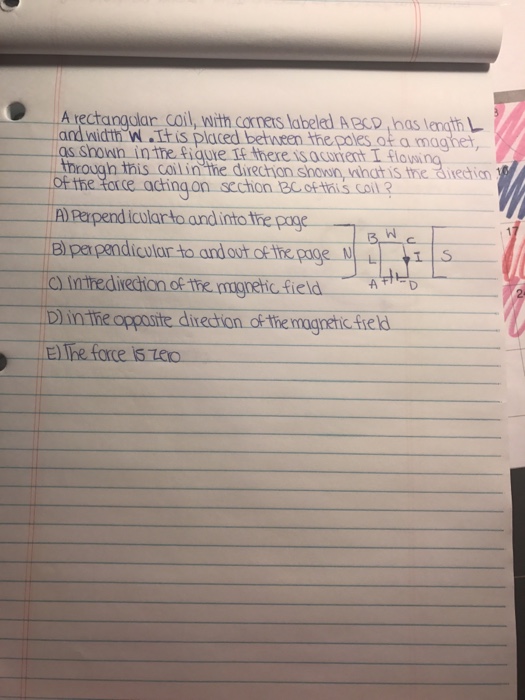 A rectangular coil, with corners labeled ABCD, has length L
and width W. It is placed between the poles of a magnet,
as shown in the figure If there is a current I flowing
through this coil in the direction shown, what is the direction
of the force acting on section BC of this coil?
A) Perpendicular to and into the page
B) perpendicular to and out of the page
C) In the direction of the magnetic field
D) in the opposite direction of the magnetic field
E) The force is zero
B W C
N L I S
A + - D